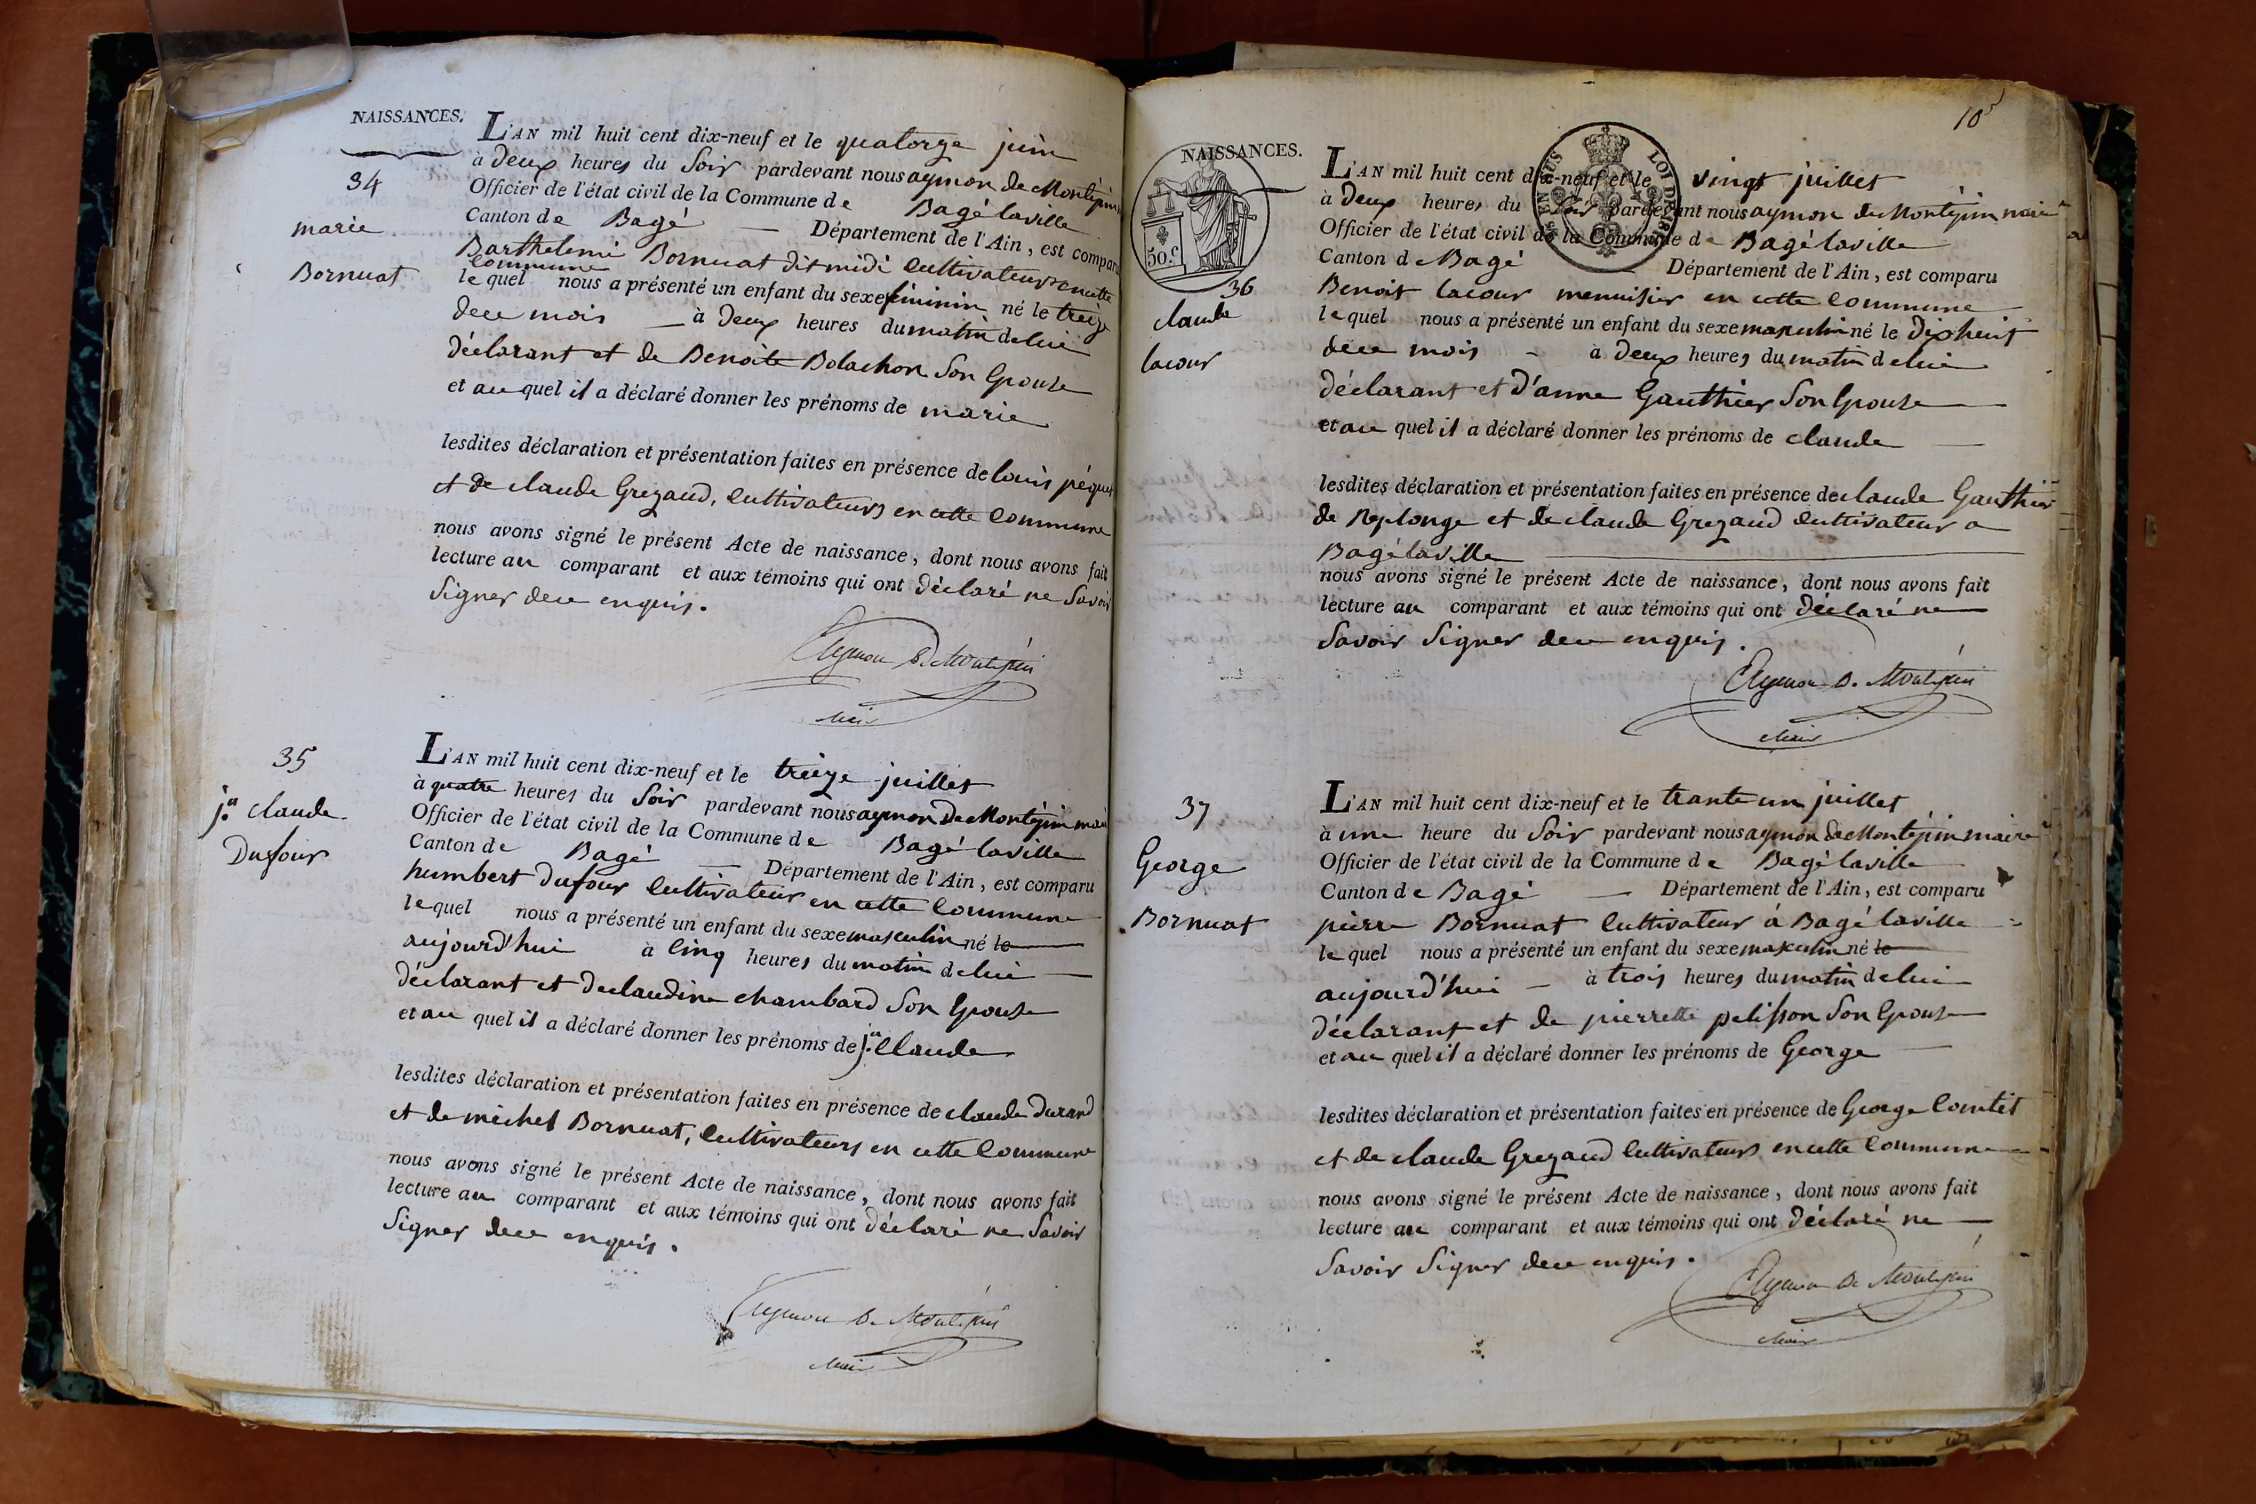 NAISSANCES.
34
marie
Bornuat
L'AN mil huit cent dix-neuf et le quatorze juin
à deux heures du Soir pardevant nous aymon de Montépin
Officier de l'état civil de la Commune de Bagé laville
Canton de Bagé — Département de l'Ain, est comparu
Barthelemi Bornuat dit midi Cultivateur en cette
Commune
le quel nous a présenté un enfant du sexe féminin né le treize
dece mois — à deux heures du matin de lui
déclarant et de Benoite Bolachon Son Epouse
et au quel il a déclaré donner les prénoms de marie
lesdites déclaration et présentation faites en présence de louis péquet
et de claude Grezaud, Cultivateurs en cette Commune
nous avons signé le présent Acte de naissance, dont nous avons fait
lecture au comparant et aux témoins qui ont déclaré ne Savoir
Signer dece enquis.
Aymon De Montépin
Maire
35
j.n claude
Dufour
L'AN mil huit cent dix-neuf et le treize juillet
à quatre heures du Soir pardevant nous aymon de Montépin mair
Officier de l'état civil de la Commune de Bagé laville
Canton de Bagé — Département de l'Ain, est comparu
humbert dufour Cultivateur en cette Commune
le quel nous a présenté un enfant du sexe masculin né le
aujourd'hui à Cinq heures du matin de lui —
déclarant et declaudine chambard Son Epouse
et au quel il a déclaré donner les prénoms de j.n Claude
lesdites déclaration et présentation faites en présence de claude durand
et de michel Bornuat, Cultivateurs en cette Commune
nous avons signé le présent Acte de naissance, dont nous avons fait
lecture au comparant et aux témoins qui ont déclaré ne Savoir
Signer dece enquis.
Aymon De Montépin
Maire
105
NAISSANCES.
50.c
LOI DE 1816
36
claude
lacour
L'AN mil huit cent dix-neuf et le vingt juillet
à deux heures du Soir pardevant nous aymon de Montépin maire
Officier de l'état civil de la Commune de Bagé laville
Canton de Bagé — Département de l'Ain, est comparu
Benoit lacour menuisier en cette Commune
le quel nous a présenté un enfant du sexe masculin né le dixhuit
dece mois - à deux heures du matin de lui
déclarant et d'anne Gauthier Son Epouse
et au quel il a déclaré donner les prénoms de claude —
lesdites déclaration et présentation faites en présence de claude Gauthier
de Replonge et de claude Grezaud Cultivateur a
Bagé laville
nous avons signé le présent Acte de naissance, dont nous avons fait
lecture au comparant et aux témoins qui ont déclaré ne
Savoir Signer dece enquis.
Aymon De Montépin
Maire
37
George
Bornuat
L'AN mil huit cent dix-neuf et le trante un juillet
à une heure du Soir pardevant nous aymon de Montépin maire
Officier de l'état civil de la Commune de Bagé laville
Canton de Bagé — Département de l'Ain, est comparu
pierre Bornuat Cultivateur à Bagé laville
le quel nous a présenté un enfant du sexe masculin né le
aujourd'hui — à trois heures du matin de lui
déclarant et de pierrette pelisson Son Epouse
et au quel il a déclaré donner les prénoms de George —
lesdites déclaration et présentation faites en présence de George Comtet
et de claude Grezaud Cultivateurs en cette Commune
nous avons signé le présent Acte de naissance, dont nous avons fait
lecture au comparant et aux témoins qui ont déclaré ne —
Savoir Signer dece enquis.
Aymon De Montépin
Maire